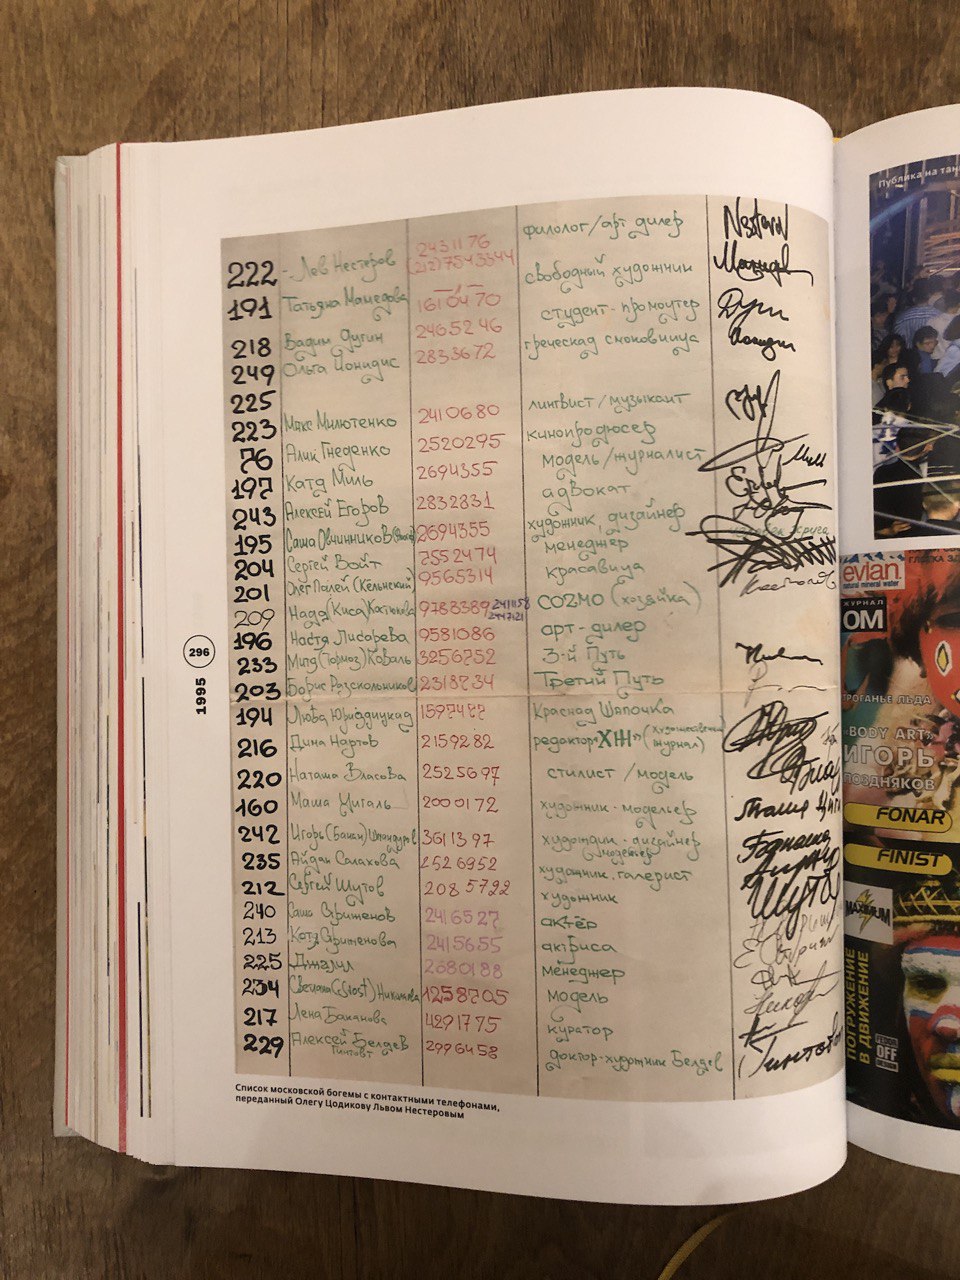 222 - Лев Нестеров 2431176 (212)7543344 филолог/арт дилер
191 Татьяна Мамедова 1610470 свободный художник
218 Вадим Дугин 2465246 студент-промоутер
249 Ольга Ионидис 2833672 греческая смоковница
225
223 Макс Милютенко 2410680 лингвист/музыкант
76 Алик Гнеденко 2520295 кинопродюсер
197 Катя Миль 2694355 модель/журналист
243 Алексей Егоров 2832831 адвокат
195 Саша Овчинников 2694355 художник, дизайнер
204 Сергей Войт 7552474 менеджер
201 Олег Палей (Кельнский) 9565314 красавица
209 Надя (Киса) 9783389 2411158 COZMO (хозяйка)
196 Настя Писарева 9581086 арт-дилер
233 Митя (Тормоз) Коваль 3256752 3-й Путь
203 Борис Раскольников 2318734 Третий Путь
194 Люба 1597477 Красная Шапочка
216 Дина Нартов 2159282 редактор "ХЖ" (художественный журнал)
220 Наташа Власова 2525697 стилист/модель
160 Маша Цигаль 2000172 художник-модельер
242 Игорь 3611397 художник-дизайнер модельер
235 Айдан Салахова 2526952 художник.галерист
212 Сергей Шутов 2085722 художник
240 Саша Стриженов 2416527 актёр
213 Катя Стриженова 2415655 актриса
225 Джалил 2680188 менеджер
234 Светлана (Ghost) Николаева 1258705 модель
217 Лена Баканова 4291775 куратор
229 Алексей Беляев Гинтовт 2996458 доктор-художник Беляев
Список московской богемы с контактными телефонами,
переданный Олегу Цодикову Львом Нестеровым
296
1995
Публика на
evian
natural mineral water
ЖУРНАЛ
ОМ
«BODY ART»
ИГОРЬ
ПОЗДНЯКОВ
FONAR
FINIST
MAXIMUM
ПОГРУЖЕНИЕ
В ДВИЖЕНИЕ
OFF